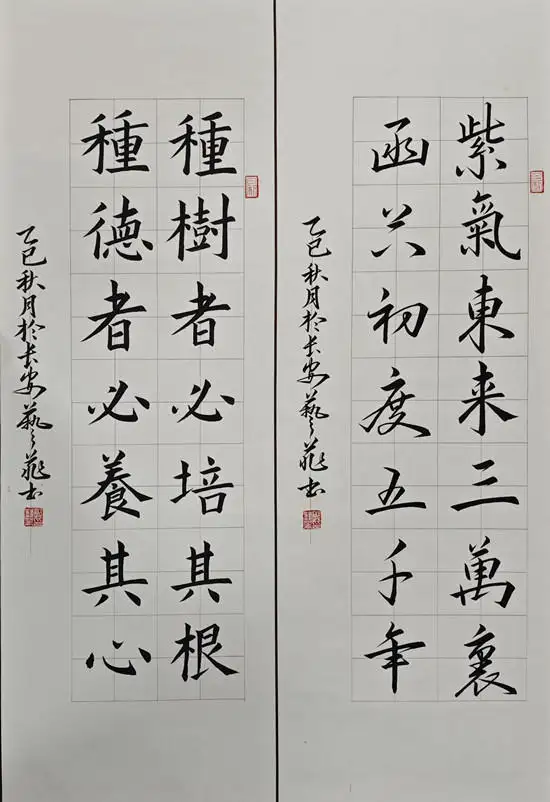 紫氣東来三萬裏
函谷初度五千年
乙巳秋月於长安藝书
種樹者必培其根
種德者必養其心
乙巳秋月於长安藝书